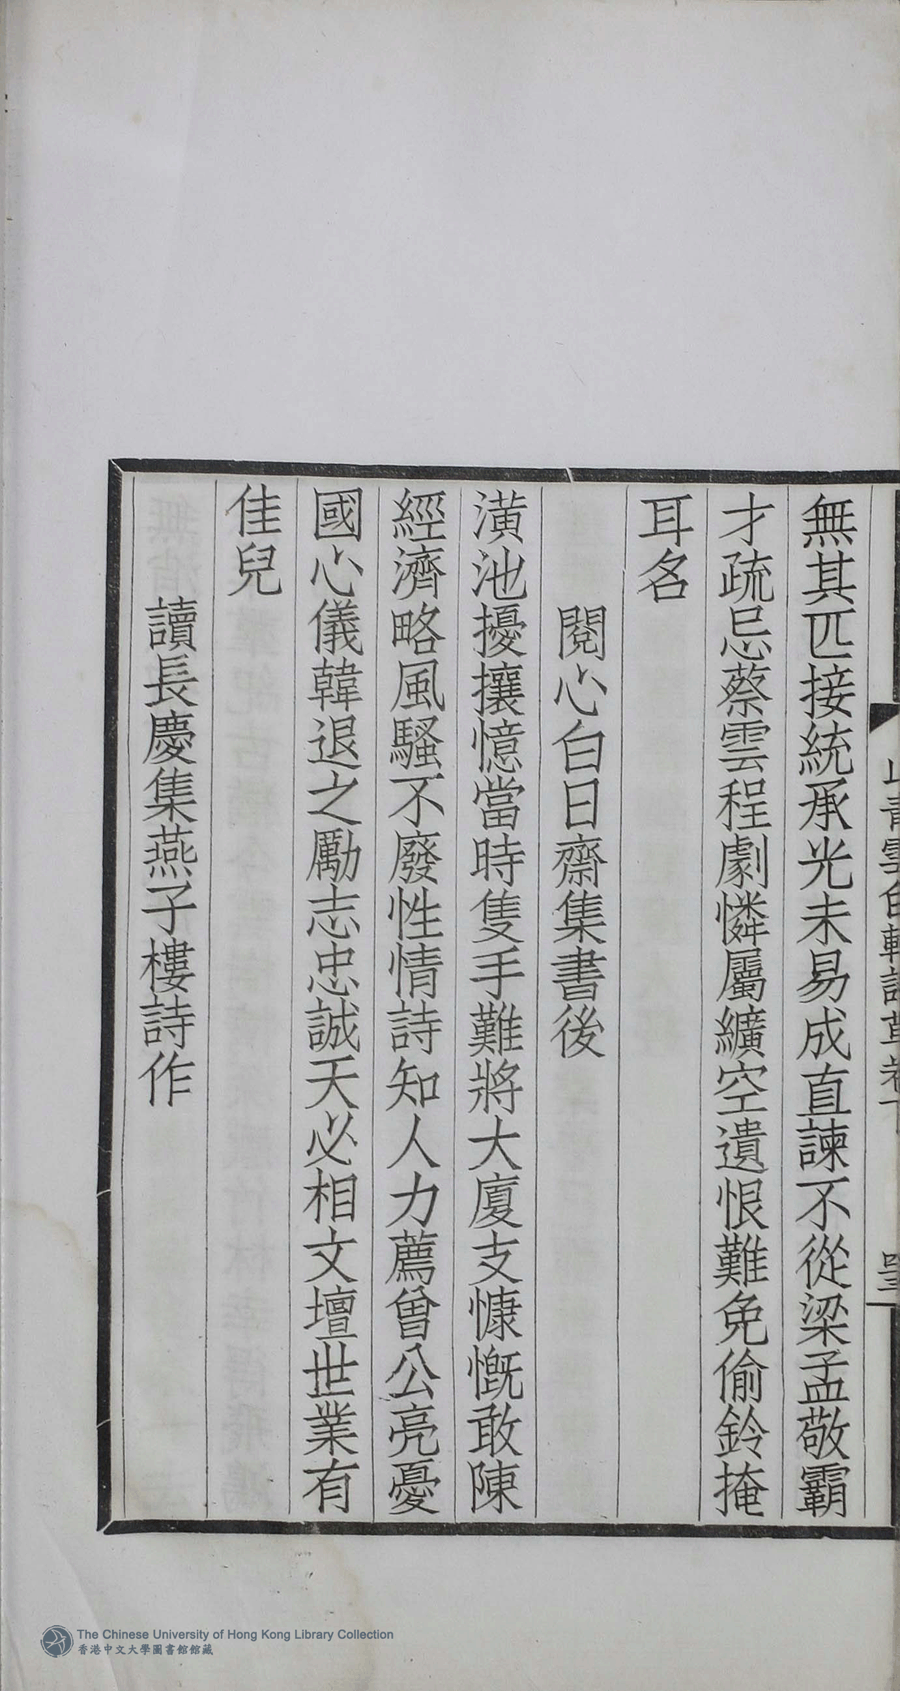 無其匹接統承光未易成直諫不從梁孟敬霸
才疏忌蔡雲程劇憐屬纊空遺恨難免偷鈴掩
耳名
閱心白日齋集書後
潢池擾攘憶當時隻手難將大廈支慷慨敢陳
經濟略風騷不廢性情詩知人力薦曾公亮憂
國心儀韓退之勵志忠誠天必相文壇世業有
佳兒
讀長慶集燕子樓詩作
The Chinese University of Hong Kong Library Collection
香港中文大學圖書館館藏